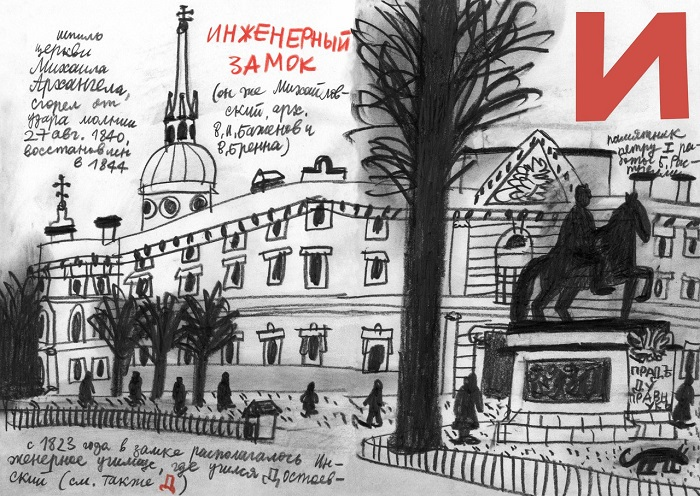 шпиль
церкви
Михаила
Архангела,
сгорел от
удара молнии
27 авг. 1840,
восстановлен
в 1844
ИНЖЕНЕРНЫЙ
ЗАМОК
(он же Михайлов-
ский, арх.
В.И. Баженов и
В. Бренна)
И
памятник
петру I ра-
боты Б. Рас-
трелли
ПРАДѢ
ДУ
ПРАВН
УКЪ
с 1823 года в замке располагалось Ин-
женерное училище, где учился Достоев-
ский (см. также Д)